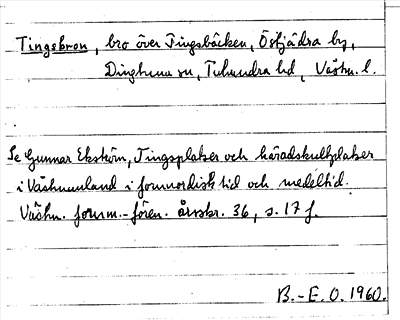 Tingsbron, bro över Tingsbäcken, Östjädra by,
Dingtuna sn, Tuhundra hd, Västm. l.
Se Gunnar Ekström, Tingsplatser och häradskultplatser
i Västmanland i fornnordisk tid och medeltid.
Västm. fornm.-fören. årsskr. 36, s. 17 f.
B.-E. O. 1960.